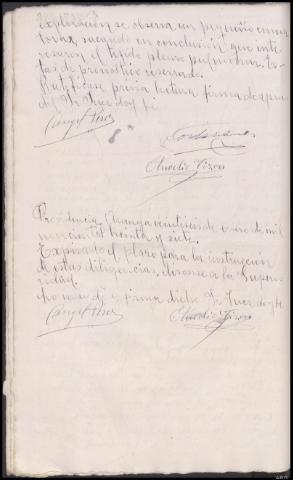 exploración se observa un pequeño
sacando en conclusión que inte
resaron el tejido pleuro pulmonar. Es
tas de pronóstico reservado.
Ratifícase previa lectura firma despues
del Sr Juez doy fé
Angel Pérez
Aurelio Pizarro
Providencia. Changa veintiseis de enero de mil
novecientos treinta y siete.
Expirado el plazo para la instrucción
de estas diligencias, elevense a la Superio
ridad.
Lo mandó y firma dicho Sr Juez doy fé
Angel Pérez
Aurelio Pizarro